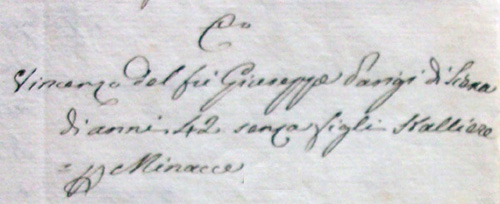 Co
Vincenzo del fu Giuseppe Parigi di Siena
di anni 42 senza figli Stalliere
= Minacce